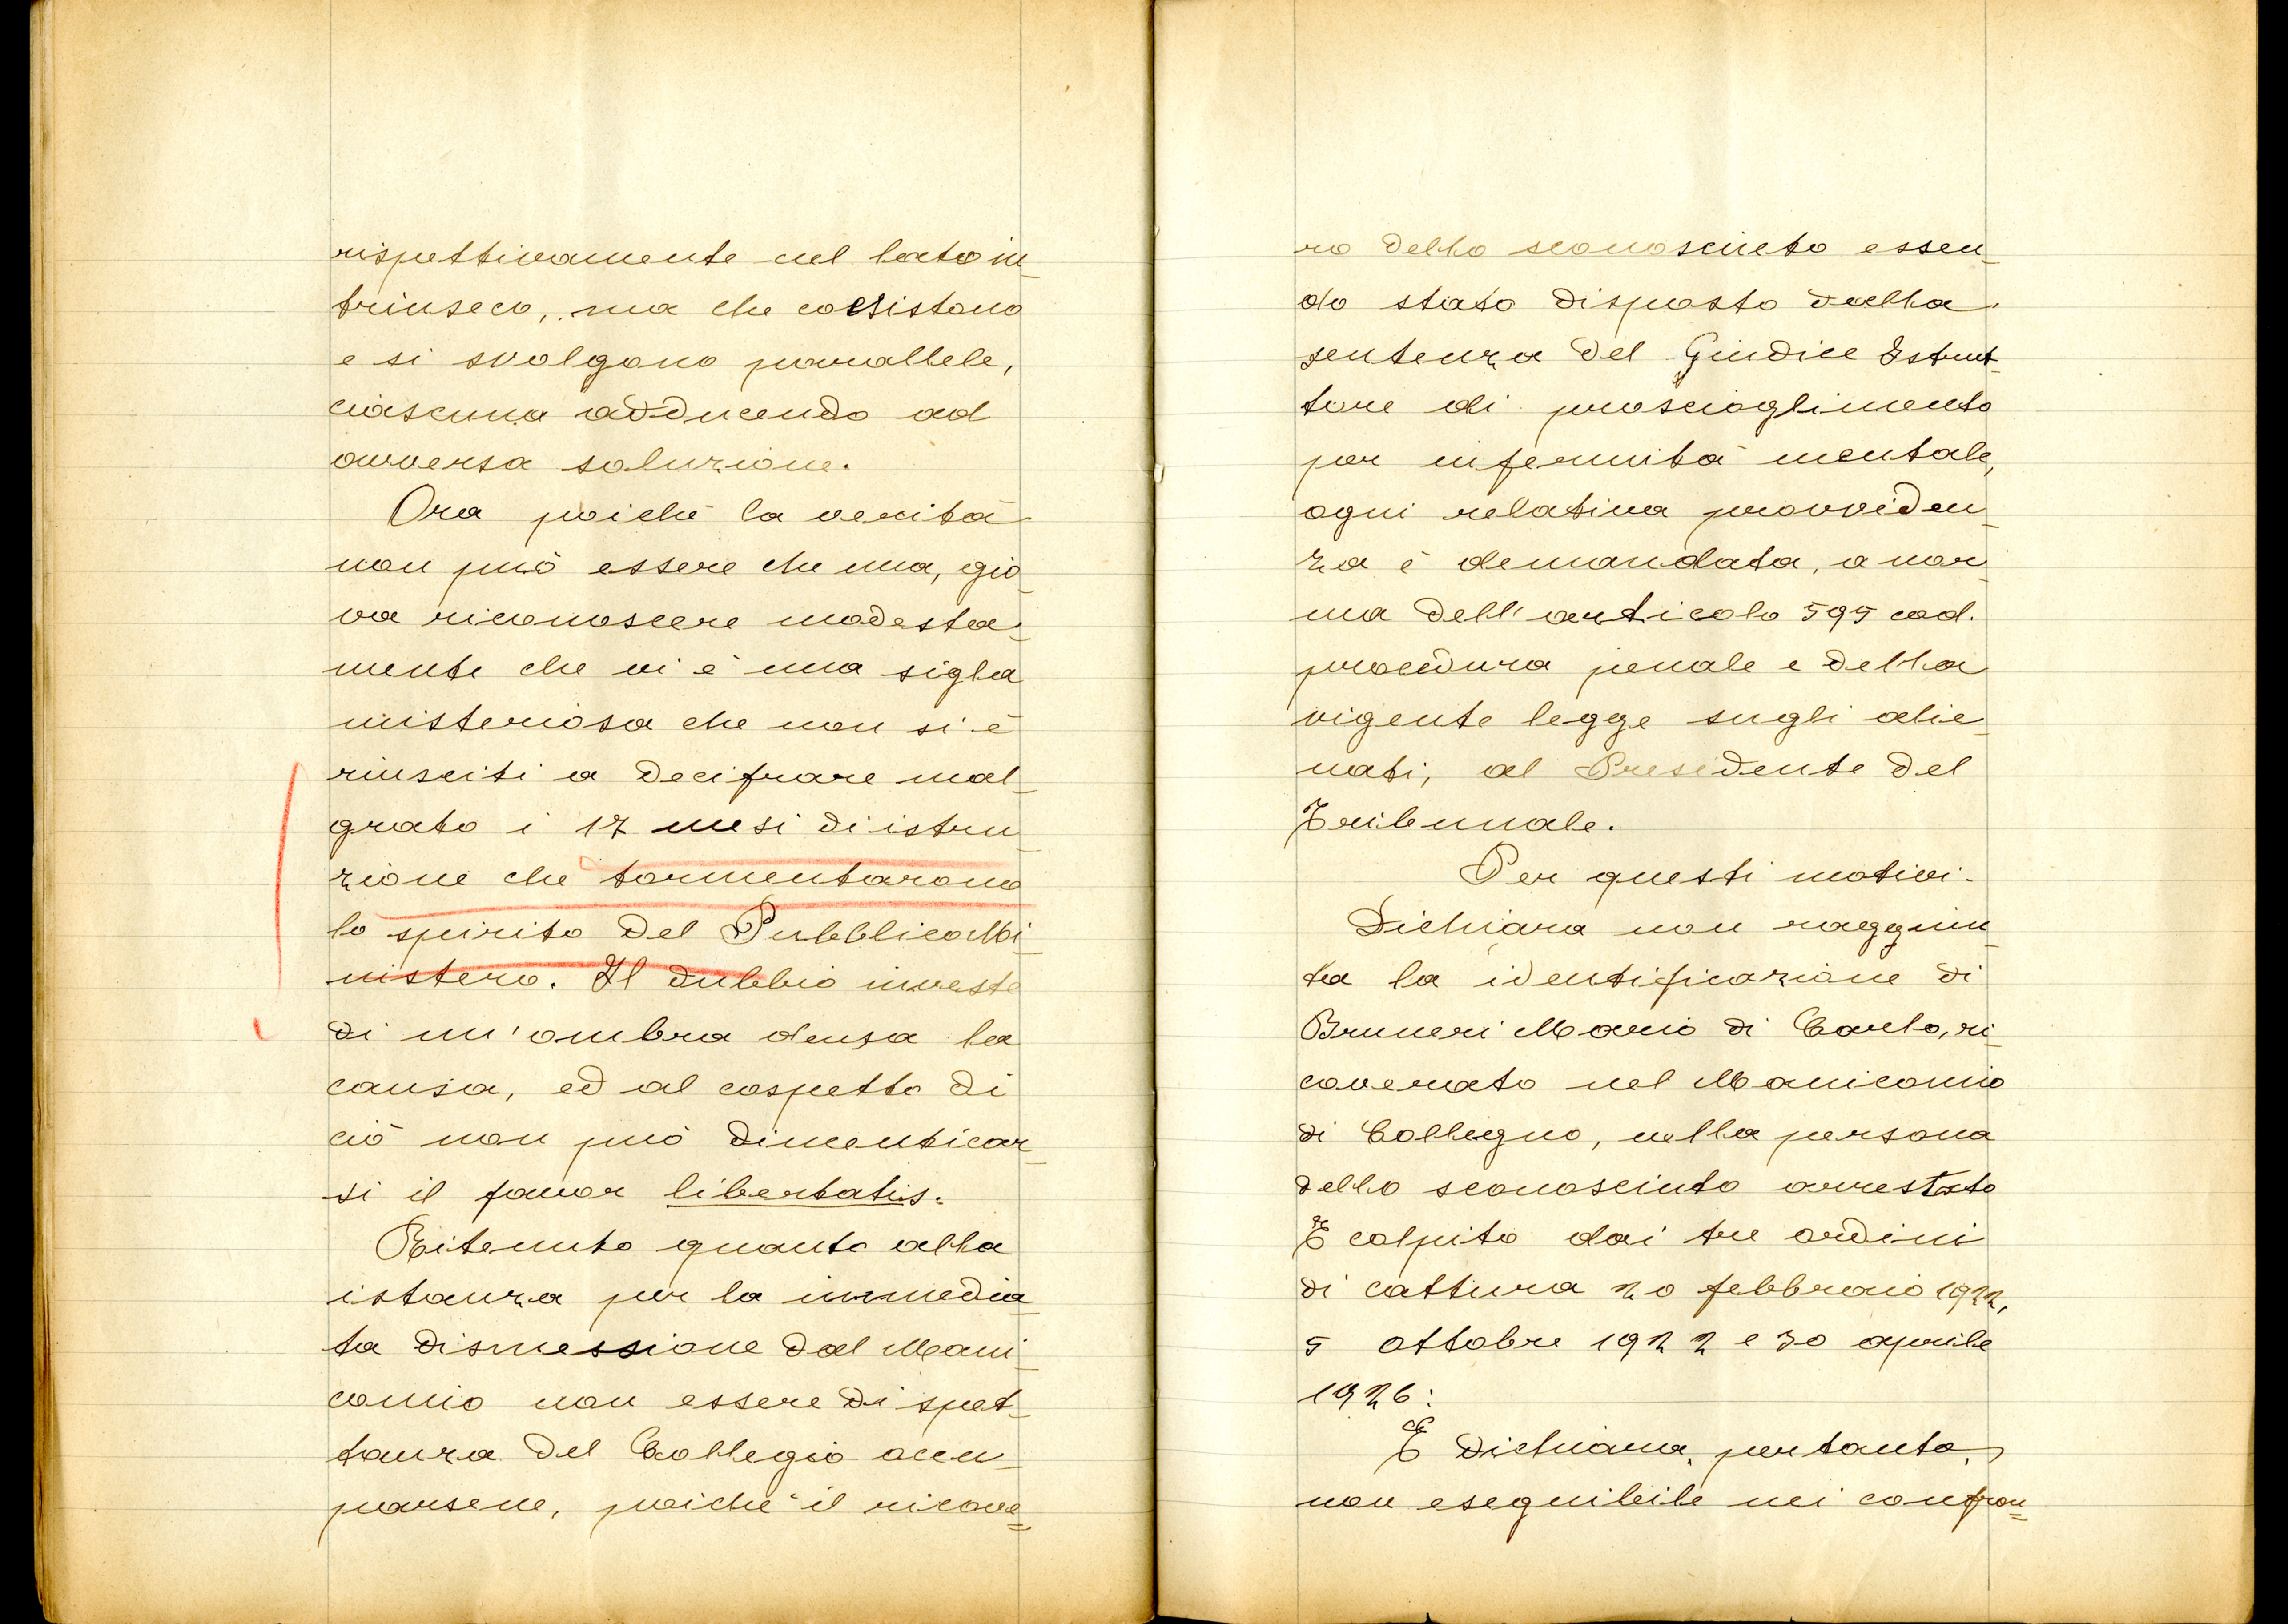 rispettivamente nel lato in-
trinseco, ma che coesistono
e si svolgono parallele,
ciascuna adducendo ad
avversa soluzione.
Ora poichè la verità
non può essere che una, gio-
va riconoscere modesta-
mente che vi è una sigla
misteriosa che non si è
riusciti a decifrare mal-
grato i 17 mesi di istru-
zione che tormentarono
lo spirito del Pubblico Mi-
nistero. Il dubbio investe
di un'ombra densa la
causa, ed al cospetto di
ciò non può dimenticar-
si il favor libertatis.
Ritenuto quanto alla
istanza per la immedia-
ta dismessione dal Mani-
comio non essere di spet-
tanza del Collegio occu-
parsene, poichè il ricove=
ro dello sconosciuto essen-
do stato disposto dalla
sentenza del Giudice Istrut-
tore di proscioglimento
per infermità mentale,
ogni relativa provviden-
za è demandata, a nor-
ma dell'articolo 595 cod.
procedura penale e della
vigente legge sugli alie-
nati, al Presidente del
Tribunale.
Per questi motivi.
Dichiara non raggiun-
ta la identificazione di
Bruneri Mario di Carlo, ri-
coverato nel Manicomio
di Collegno, nella persona
dello sconosciuto arrestato
E colpito dai tre ordini
di cattura 20 febbraio 1922,
5 ottobre 1922 e 30 aprile
1926:
E dichiara, pertanto,
non eseguibile nei confron=